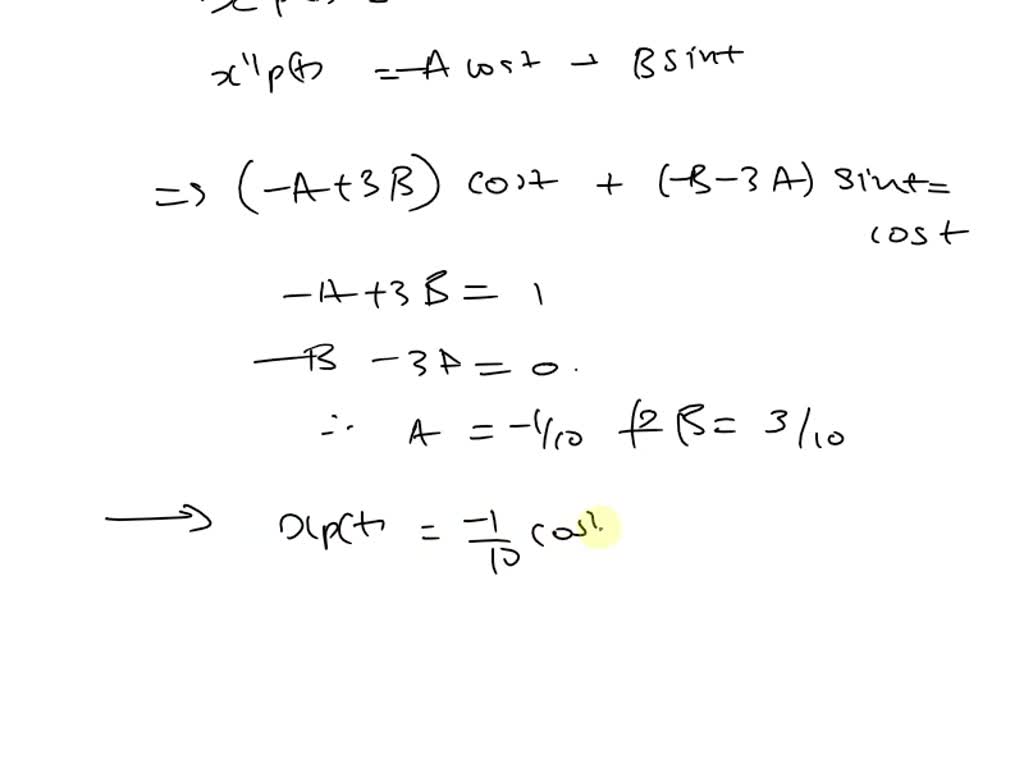 x''p(t) = -A cost - B sint
=> (-A+3B) cost + (-B-3A) sint =
cost
-A+3B = 1
-B -3A = 0.
∴ A = -1/10 & B = 3/10
→ xp(t) = -1/10 cost